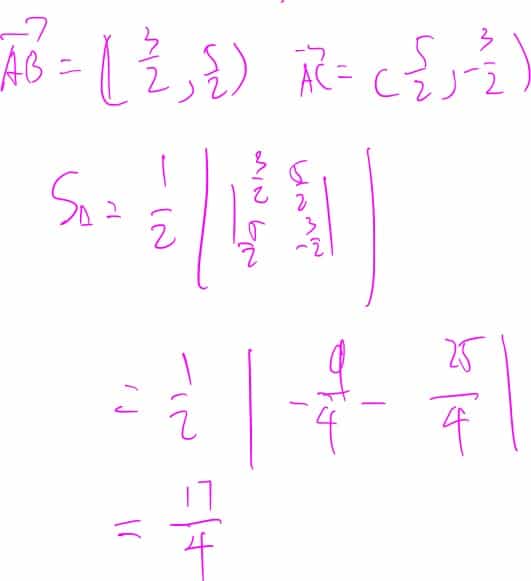 AB⃗ = (3/2, 5/2) AC⃗ = (5/2, -3/2)
S△ = 1/2 | |3/2 5/2; 5/2 -3/2| |
= 1/2 | -9/4 - 25/4 |
= 17/4